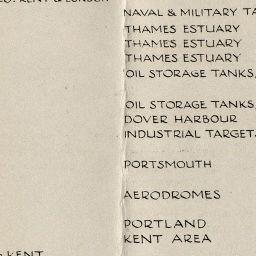 KENT & LONDON
NAVAL & MILITARY
THAMES ESTUARY
THAMES ESTUARY
THAMES ESTUARY
OIL STORAGE TANKS,
OIL STORAGE TANKS,
DOVER HARBOUR
INDUSTRIAL TARGET
PORTSMOUTH
AERODROMES
PORTLAND
KENT AREA
KENT